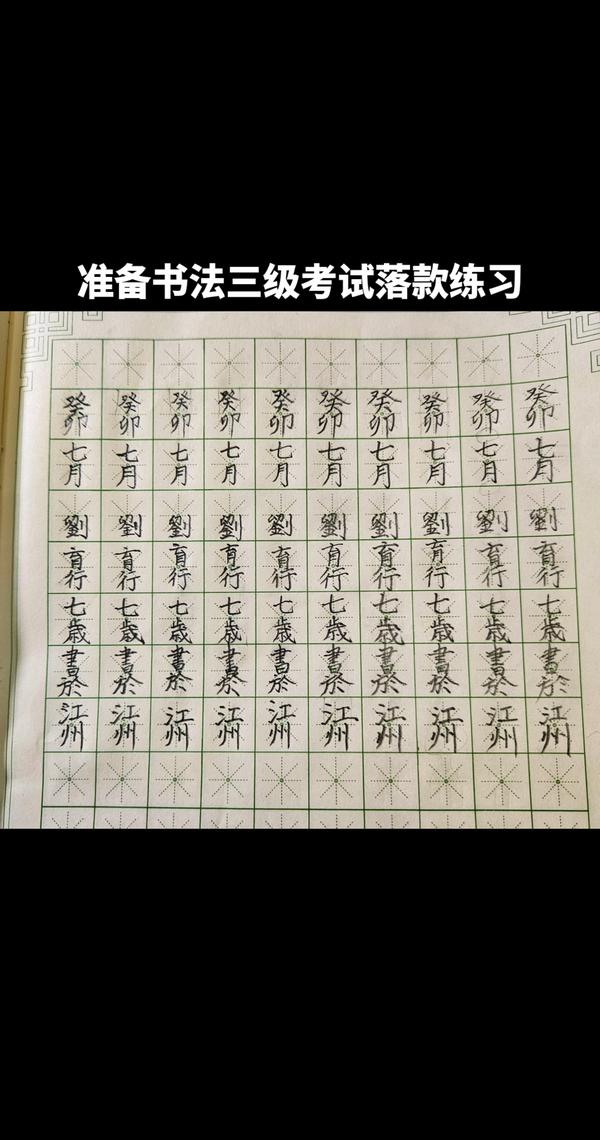 准备书法三级考试落款练习
癸卯七月劉育行七歲書於江州
癸卯七月劉育行七歲書於江州
癸卯七月劉育行七歲書於江州
癸卯七月劉育行七歲書於江州
癸卯七月劉育行七歲書於江州
癸卯七月劉育行七歲書於江州
癸卯七月劉育行七歲書於江州
癸卯七月劉育行七歲書於江州
癸卯七月劉育行七歲書於江州
癸卯七月劉育行七歲書於江州